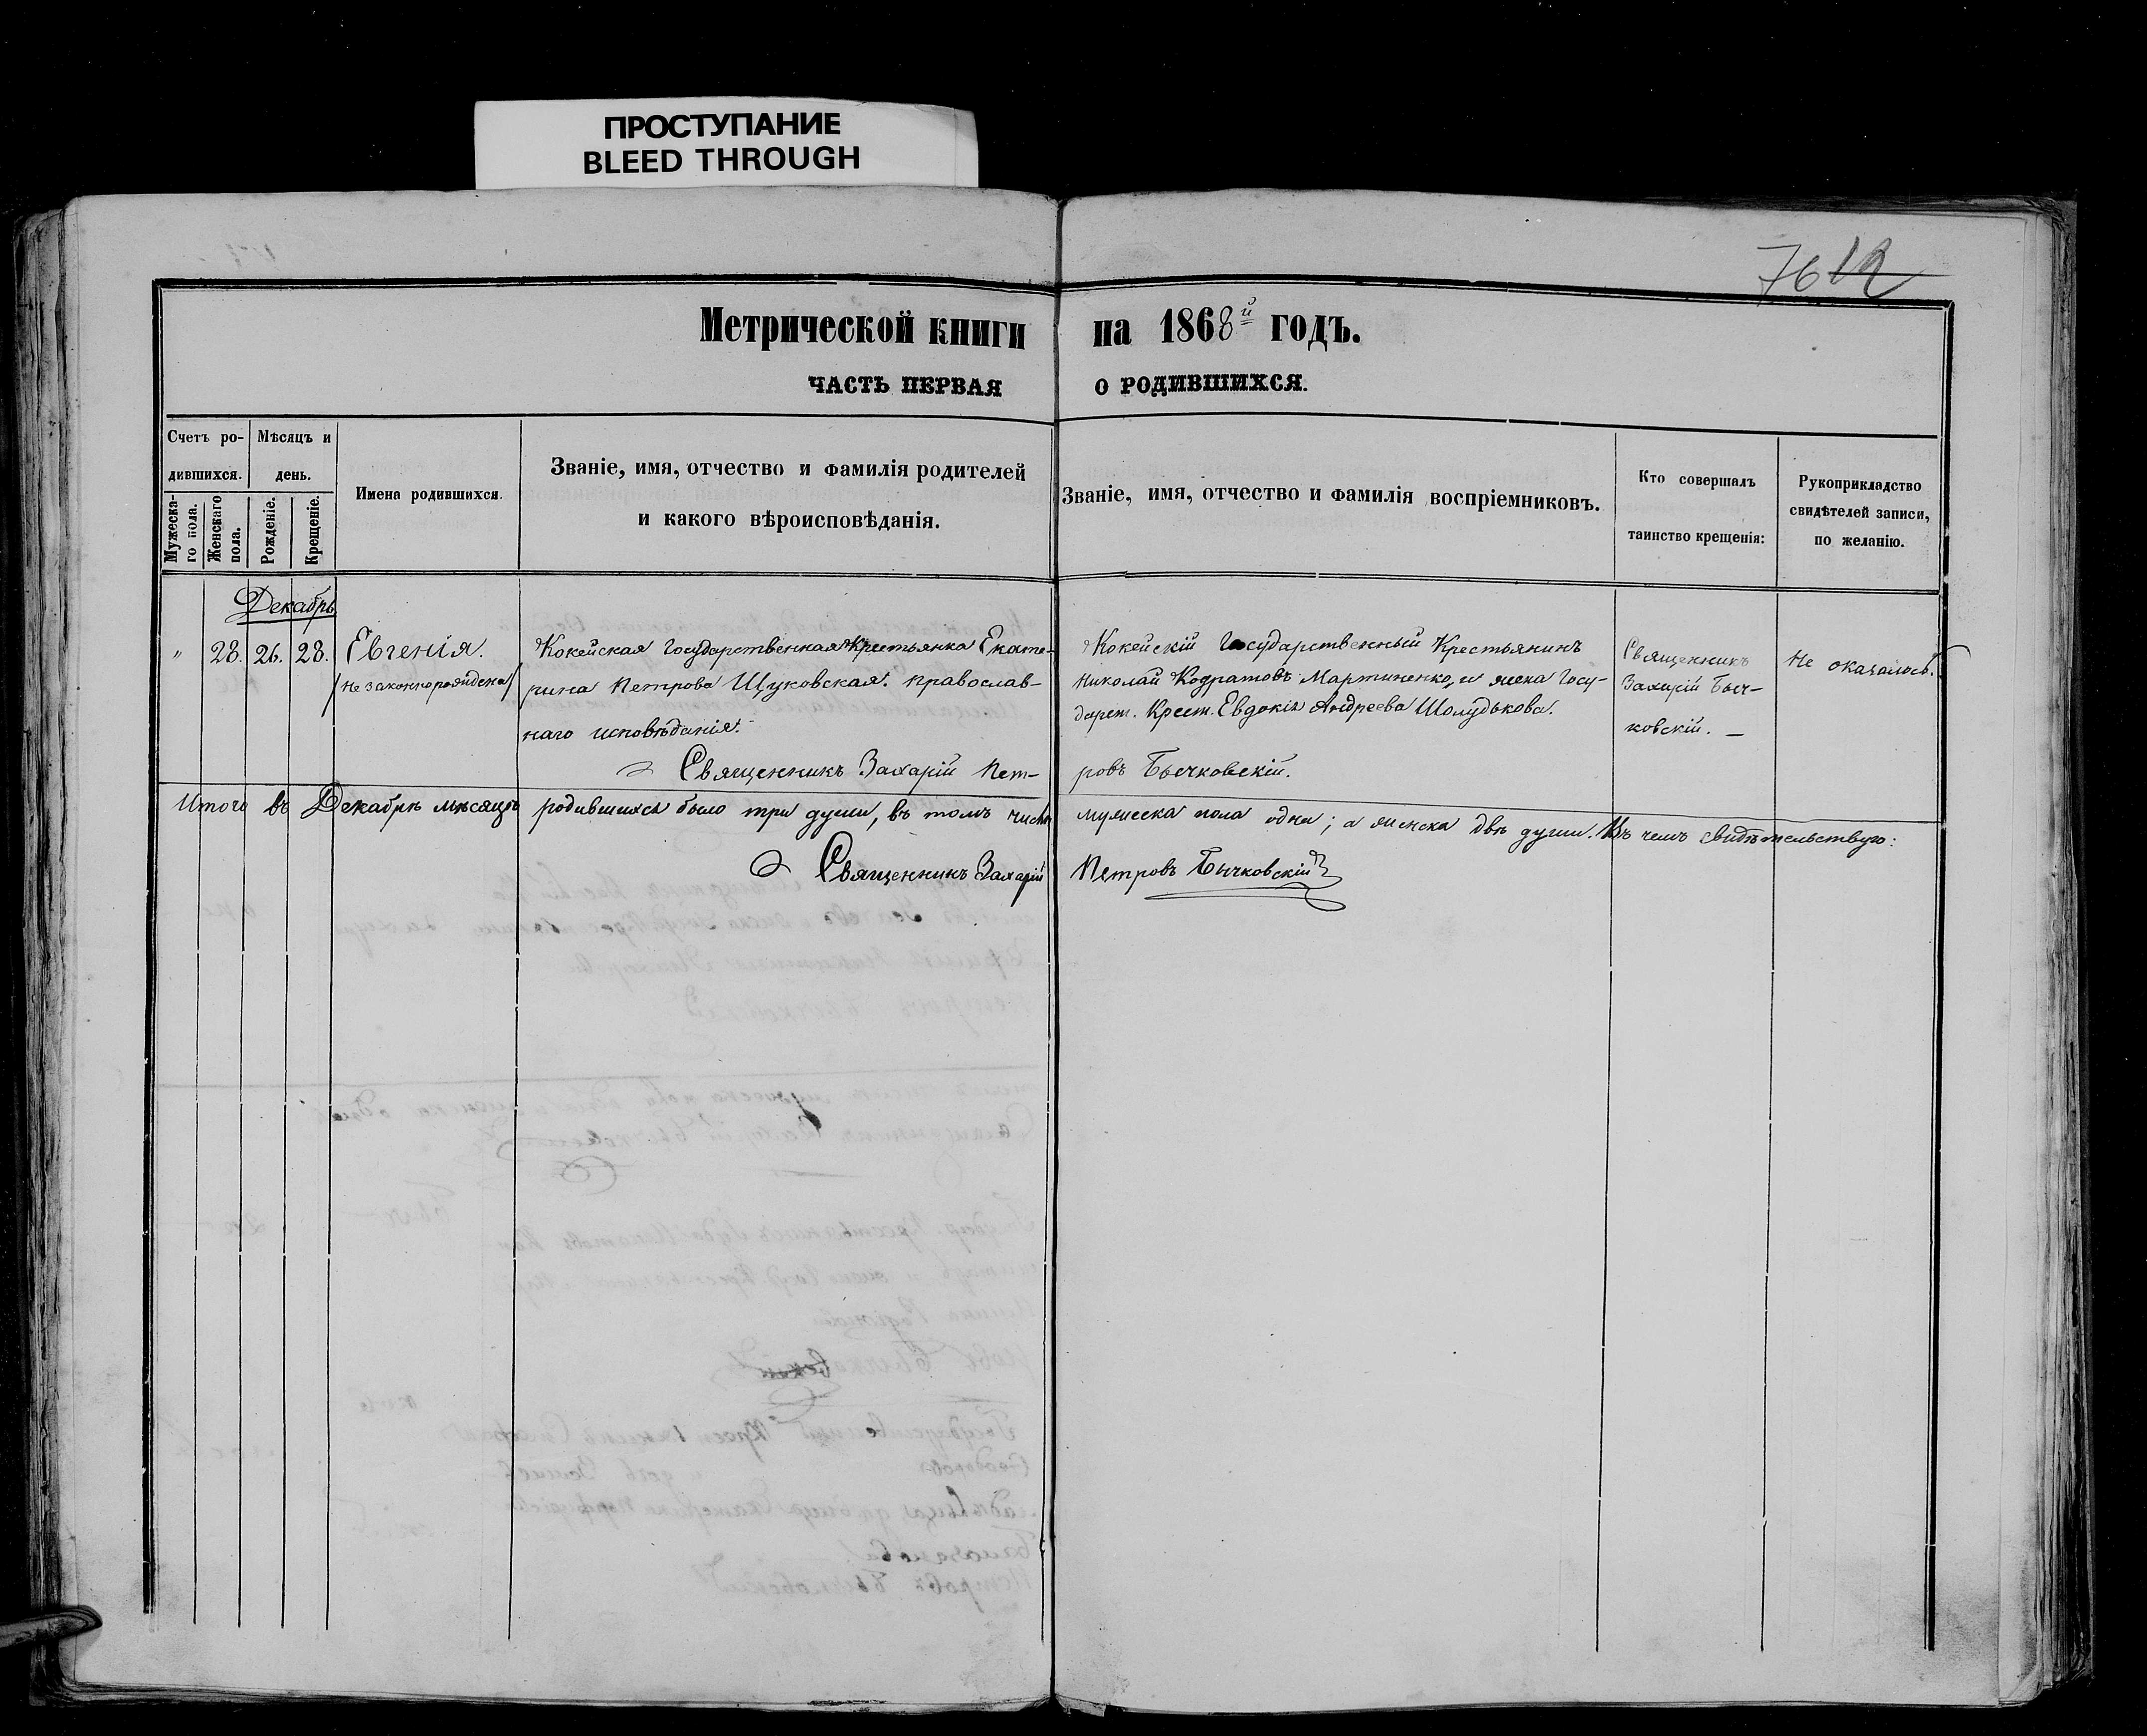 ПРОСТУПАНИЕ
BLEED THROUGH
76 12
Метрической книги на 1868й годъ.
ЧАСТЬ ПЕРВАЯ О РОДИВШИХСЯ.
Счетъ ро-
дившихся.
Мужеска-
го пола.
Женскаго
пола.
Мѣсяцъ и
день.
Рожденіе.
Крещеніе.
Имена родившихся.
Званіе, имя, отчество и фамилія родителей
и какого вѣроисповѣданія.
Званіе, имя, отчество и фамилія воспріемниковъ.
Кто совершалъ
таинство крещенія:
Рукоприкладство
свидѣтелей записи,
по желанію.
Декабрь
" 28. 26. 28. Евгенія.
/незаконнорождена/
Кокейская Государственная Крестьянка Екате-
рина Петрова Щуковская. Православ-
наго исповѣданія.
Священникъ Захарій Пет-
Кокейскій Государственный Крестьянинъ
Николай Кодратовъ Мартиненко, и жена Госу-
дарст. Крест. Евдокія Андреева Шолудькова.
ровъ Бычковскій.
Священникъ
Захарій Быч-
ковскій. —
Не оказалось.
Итого въ Декабрѣ мѣсяцѣ родившихся было три души, въ томъ числѣ мужеска пола одна; а женска двѣ души. Въ чемъ свидѣтельствую:
Священникъ Захарій Петровъ Бычковскій